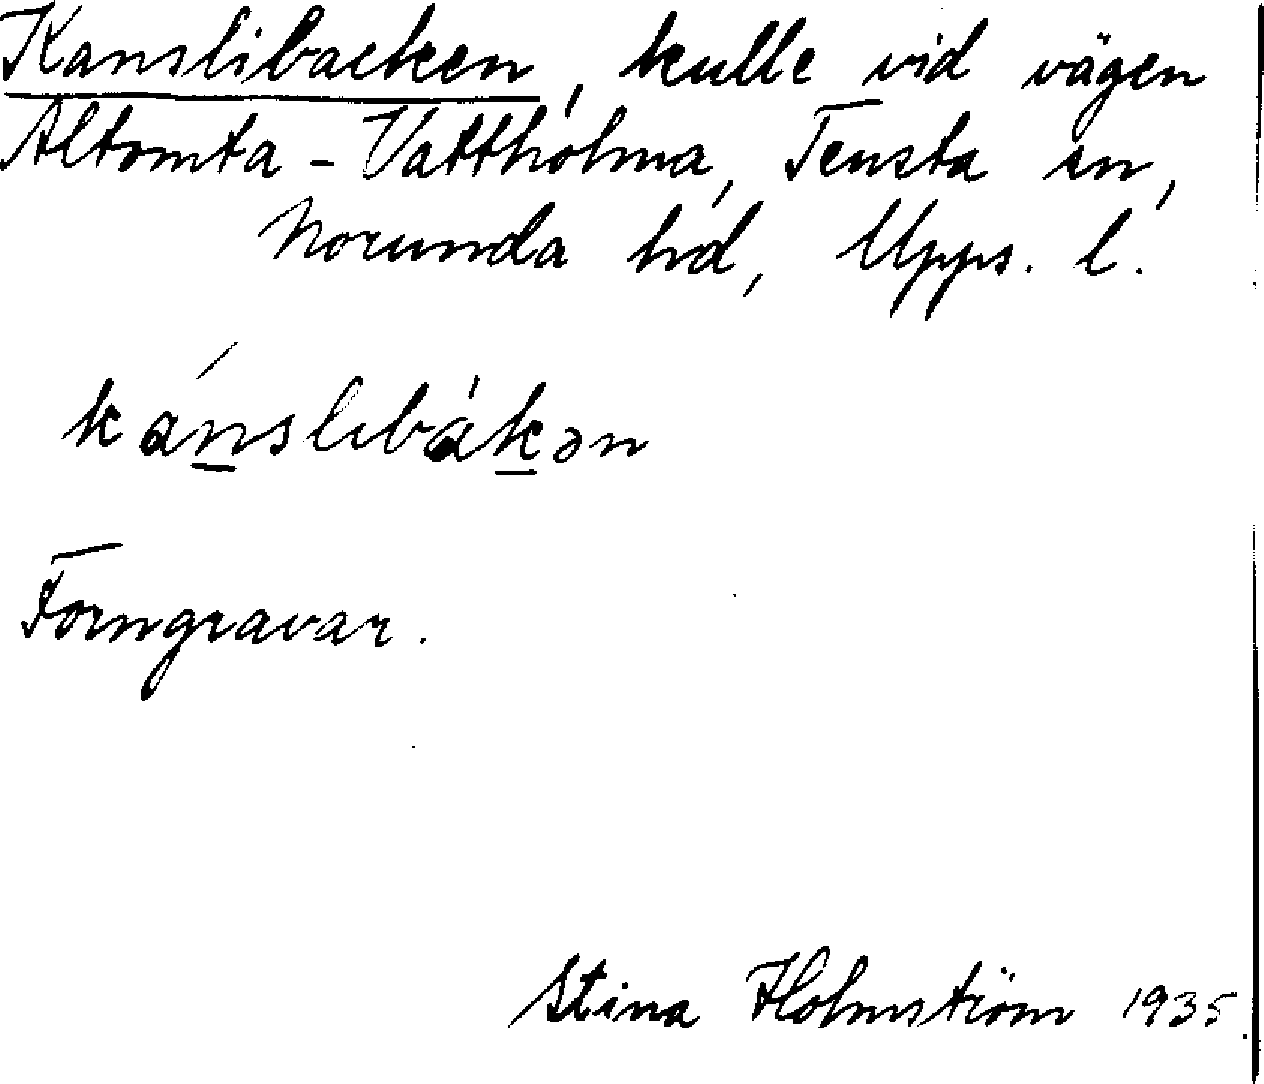 Kanslibacken, kulle vid vägen
Altomta - Vattholma, Tensta sn,
Norunda hd, Upps. l.
kánslibákən
Forngravar.
Stina Holmström 1935.